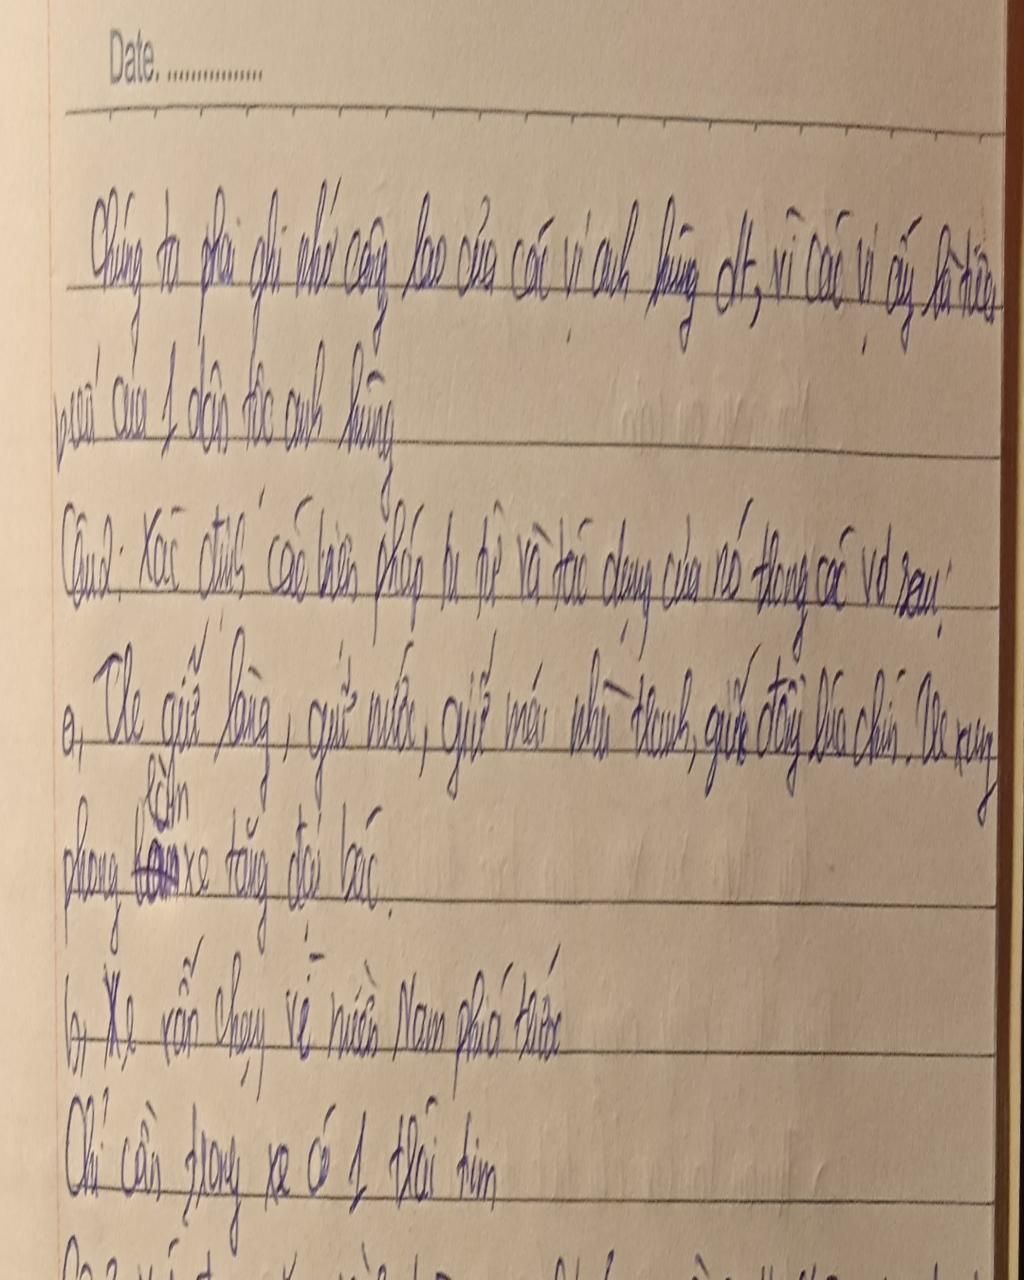 Date...............
Chúng ta phải ghi nhớ công lao của các vị anh hùng dt, vì các vị ấy là tiêu
biểu của 1 dân tộc anh hùng
Câu 2: Xác định các biện pháp tu từ và tác dụng của nó trong các vd sau:
a, Tre giữ làng, giữ nước, giữ mái nhà tranh, giữ đồng lúa chín. Tre xung
phong lần xe tăng đại bác.
b, Xe vẫn chạy vì miền Nam phía trước
Chỉ cần trong xe có 1 trái tim